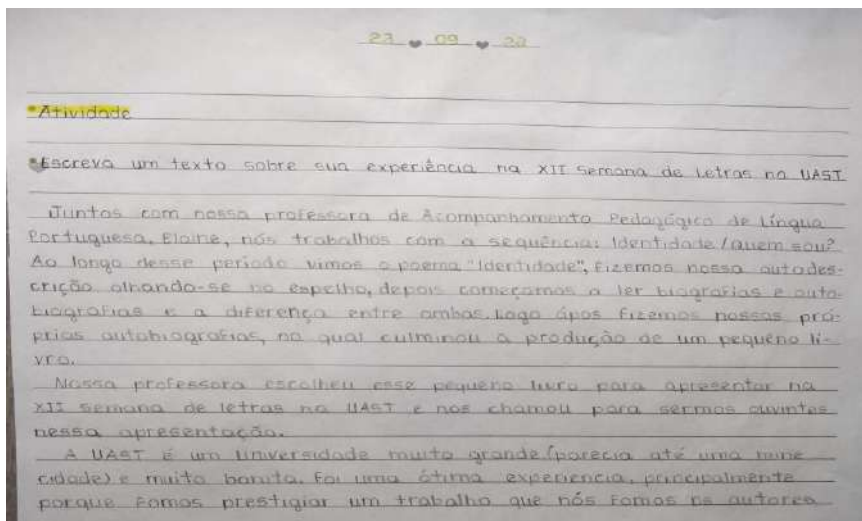 23 09 22
Atividade
Escreva um texto sobre sua experiência na XII semana de Letras na UAST
Juntos com nossa professora de Acompanhamento Pedagógico de Língua
Portuguesa, Elaine, nós trabalhos com a sequência: Identidade/quem sou?
Ao longo desse período vimos o poema "Identidade", fizemos nossa autodes-
crição olhando-se no espelho, depois começamos a ler biografias e auto-
biografias e a diferença entre ambas. Logo ápos fizemos nossas pró-
prias autobiografias, na qual culminou a produção de um pequeno li-
vro.
Nossa professora escolheu esse pequeno livro para apresentar na
XII semana de letras na UAST e nos chamou para sermos ouvintes
nessa apresentação.
A UAST é um universidade muito grande (parecia até uma mine
cidade) e muito bonita. Foi uma ótima experiencia, principalmente
porque fomos prestigiar um trabalho que nós fomos os autores